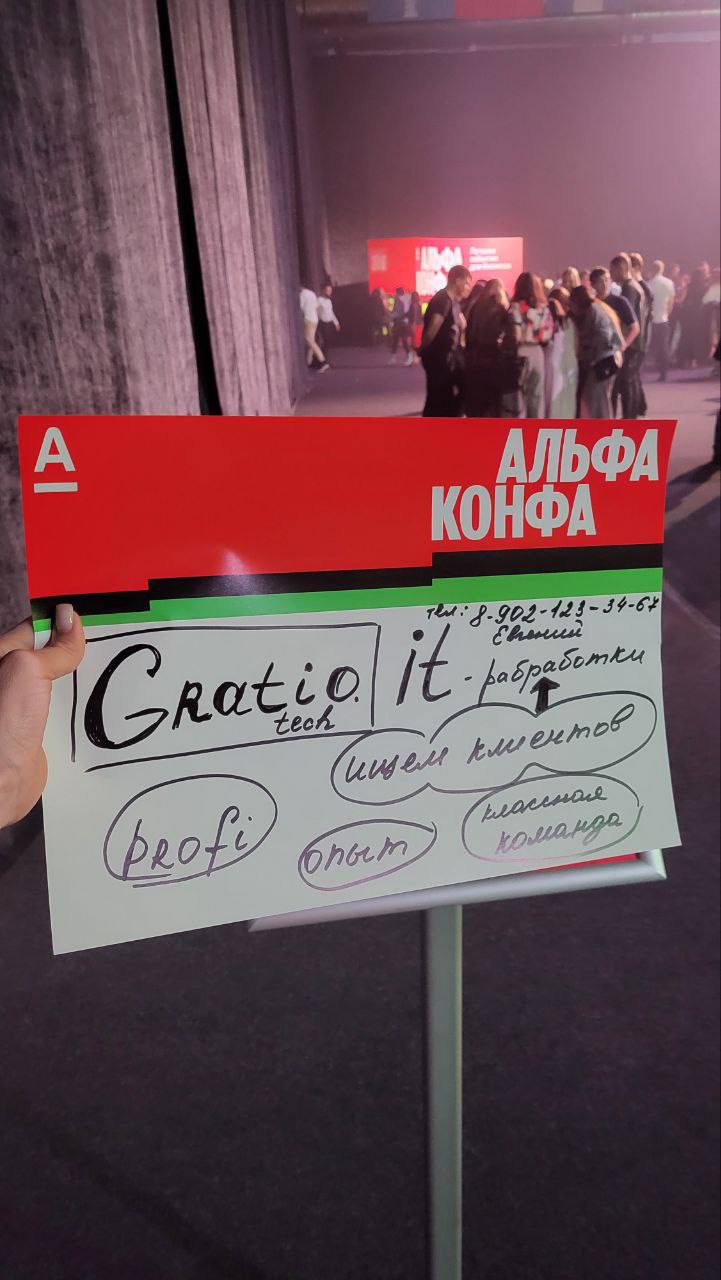 АЛЬФА
КОНФА
А
АЛЬФА
КОНФА
тел: 8-902-123-34-67
Евгений
Gratio.
tech
it - рабработки
ищем клиентов
profi
опыт
классная
команда